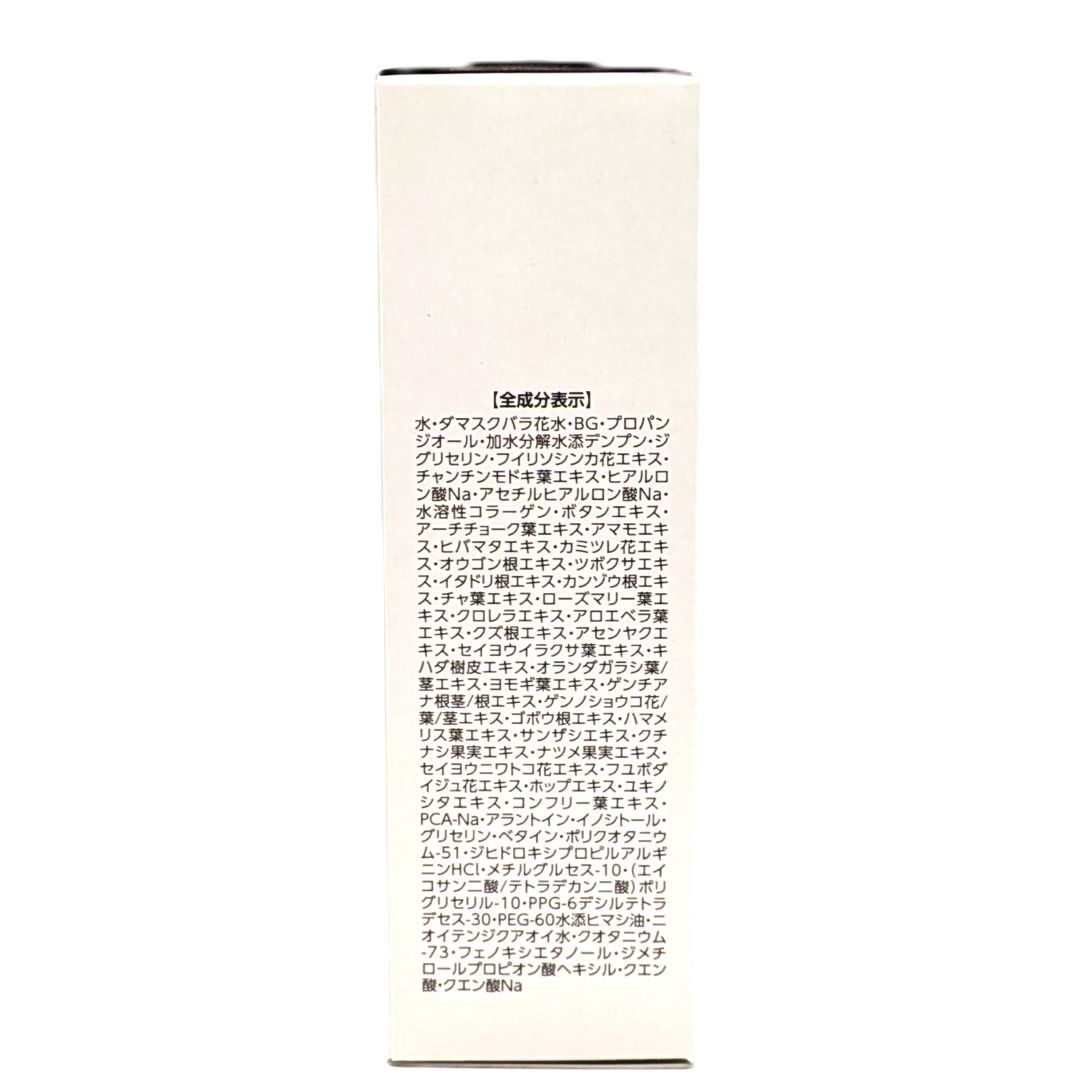 【全成分表示】
水・ダマスクバラ花水・BG・プロパン
ジオール・加水分解水添デンプン・ジ
グリセリン・フイリソシンカ花エキス・
チャンチンモドキ葉エキス・ヒアルロ
ン酸Na・アセチルヒアルロン酸Na・
水溶性コラーゲン・ボタンエキス・
アーチチョーク葉エキス・アマモエキ
ス・ヒバマタエキス・カミツレ花エキ
ス・オウゴン根エキス・ツボクサエキ
ス・イタドリ根エキス・カンゾウ根エキ
ス・チャ葉エキス・ローズマリー葉エ
キス・クロレラエキス・アロエベラ葉
エキス・クズ根エキス・アセンヤクエ
キス・セイヨウイラクサ葉エキス・キ
ハダ樹皮エキス・オランダガラシ葉/
茎エキス・ヨモギ葉エキス・ゲンチア
ナ根茎/根エキス・ゲンノショウコ花/
葉/茎エキス・ゴボウ根エキス・ハマメ
リス葉エキス・サンザシエキス・クチ
ナシ果実エキス・ナツメ果実エキス・
セイヨウニワトコ花エキス・フユボダ
イジュ花エキス・ホップエキス・ユキノ
シタエキス・コンフリー葉エキス・
PCA-Na・アラントイン・イノシトール・
グリセリン・ベタイン・ポリクオタニウ
ム-51・ジヒドロキシプロピルアルギ
ニンHCl・メチルグルセス-10・(エイ
コサン二酸/テトラデカン二酸)ポリ
グリセリル-10・PPG-6デシルテトラ
デセス-30・PEG-60水添ヒマシ油・ニ
オイテンジクアオイ水・クオタニウム
-73・フェノキシエタノール・ジメチ
ロールプロピオン酸ヘキシル・クエン
酸・クエン酸Na